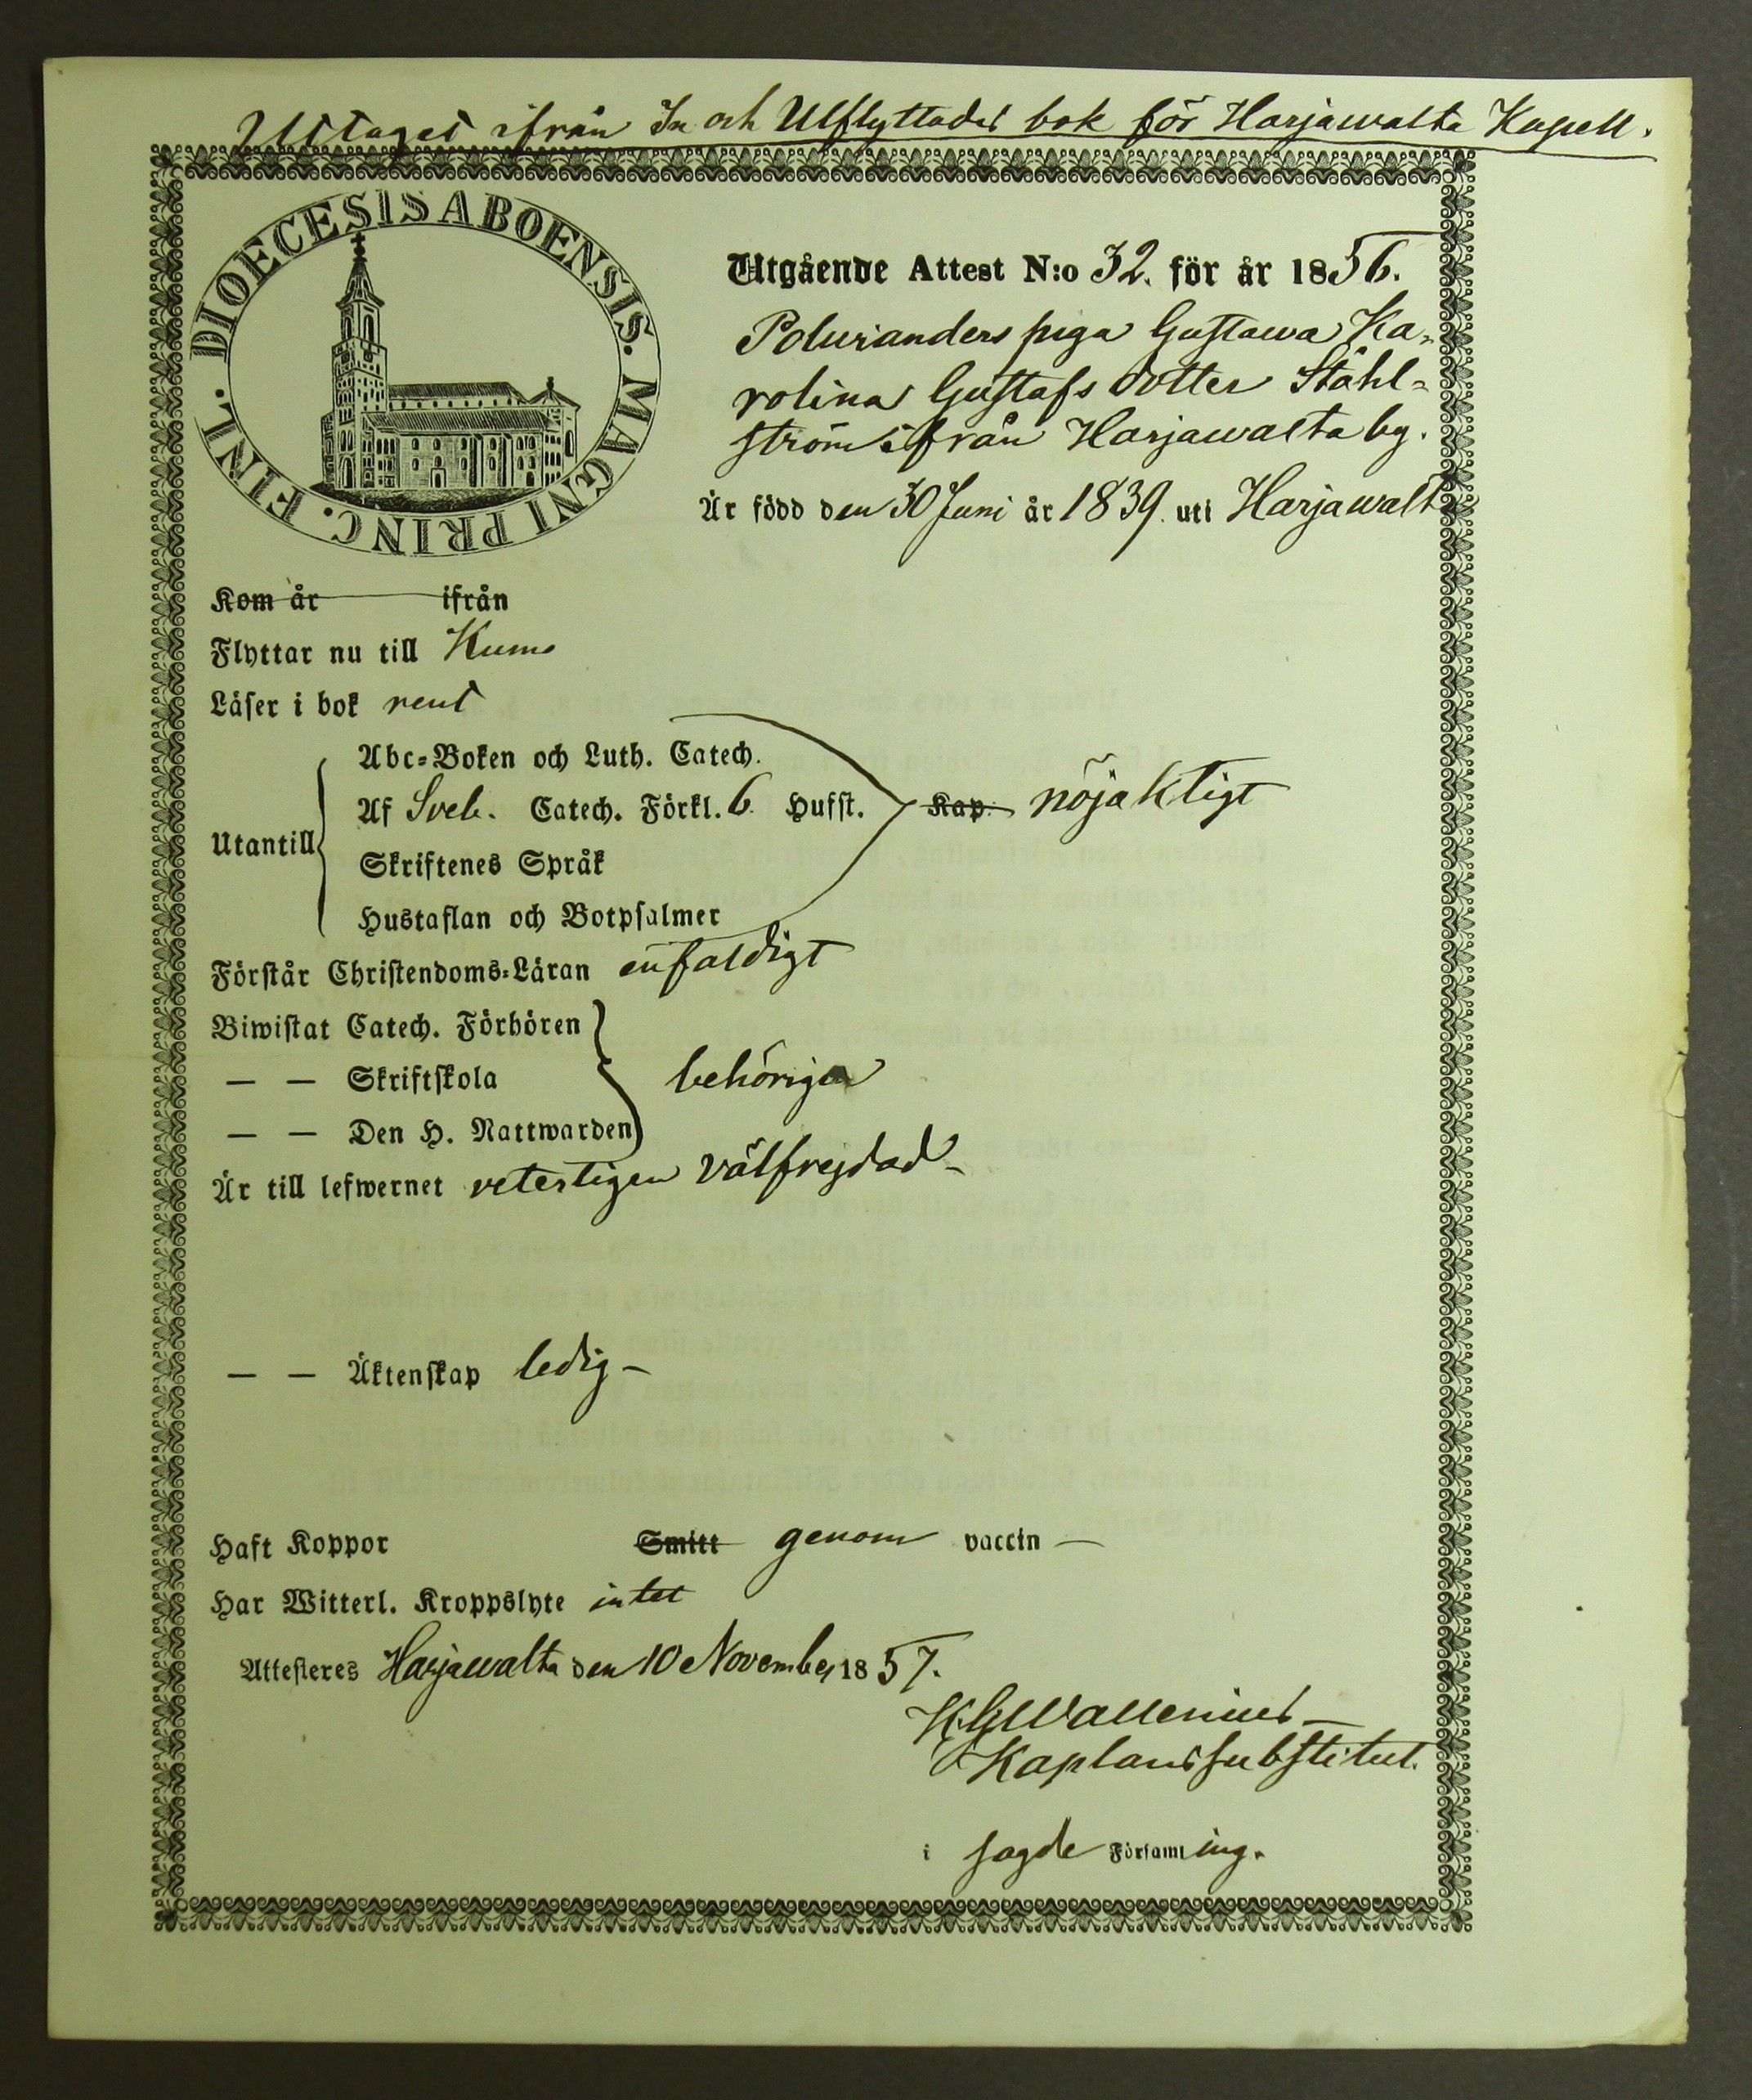 Uttaget ifrån In och Utflyttades bok för Harjawalta Kapell.
DIOECESIS ABOENSIS. MAGNI PRINC. FINL.
Utgående Attest N:o 32. för år 1856.
piga Gustawa Ka-
rolina Gustafs dotter Ståhl-
ström ifrån Harjawalta by.
Är född den 30 Juni år 1839. uti Harjawalt
Kom år ifrån
Flyttar nu till Kumo
Läser i bok rent
Abc-Boken och Luth. Catech.
Af Sveb. Catech. Förkl. 6 Hufst. Kap. nöjaktigt
Utantill
Skriftenes Språk
Hustaflan och Botpsalmer
Förstår Christendoms-Läran enfaldigt
Biwistat Catech. Förhören
— — Skriftskola behörigen
— — Den H. Nattwarden
Är till lefwernet veterligen välfrejdad-
— — Äktenskap ledig-
Haft Koppor Smitt genom vaccin —
Har Witterl. Kroppslyte intet
Attesteres Harjawalta den 10 November 1857.
K.G. Wallenius-
Kaplanssubstitut.
i sagde Församl ing.